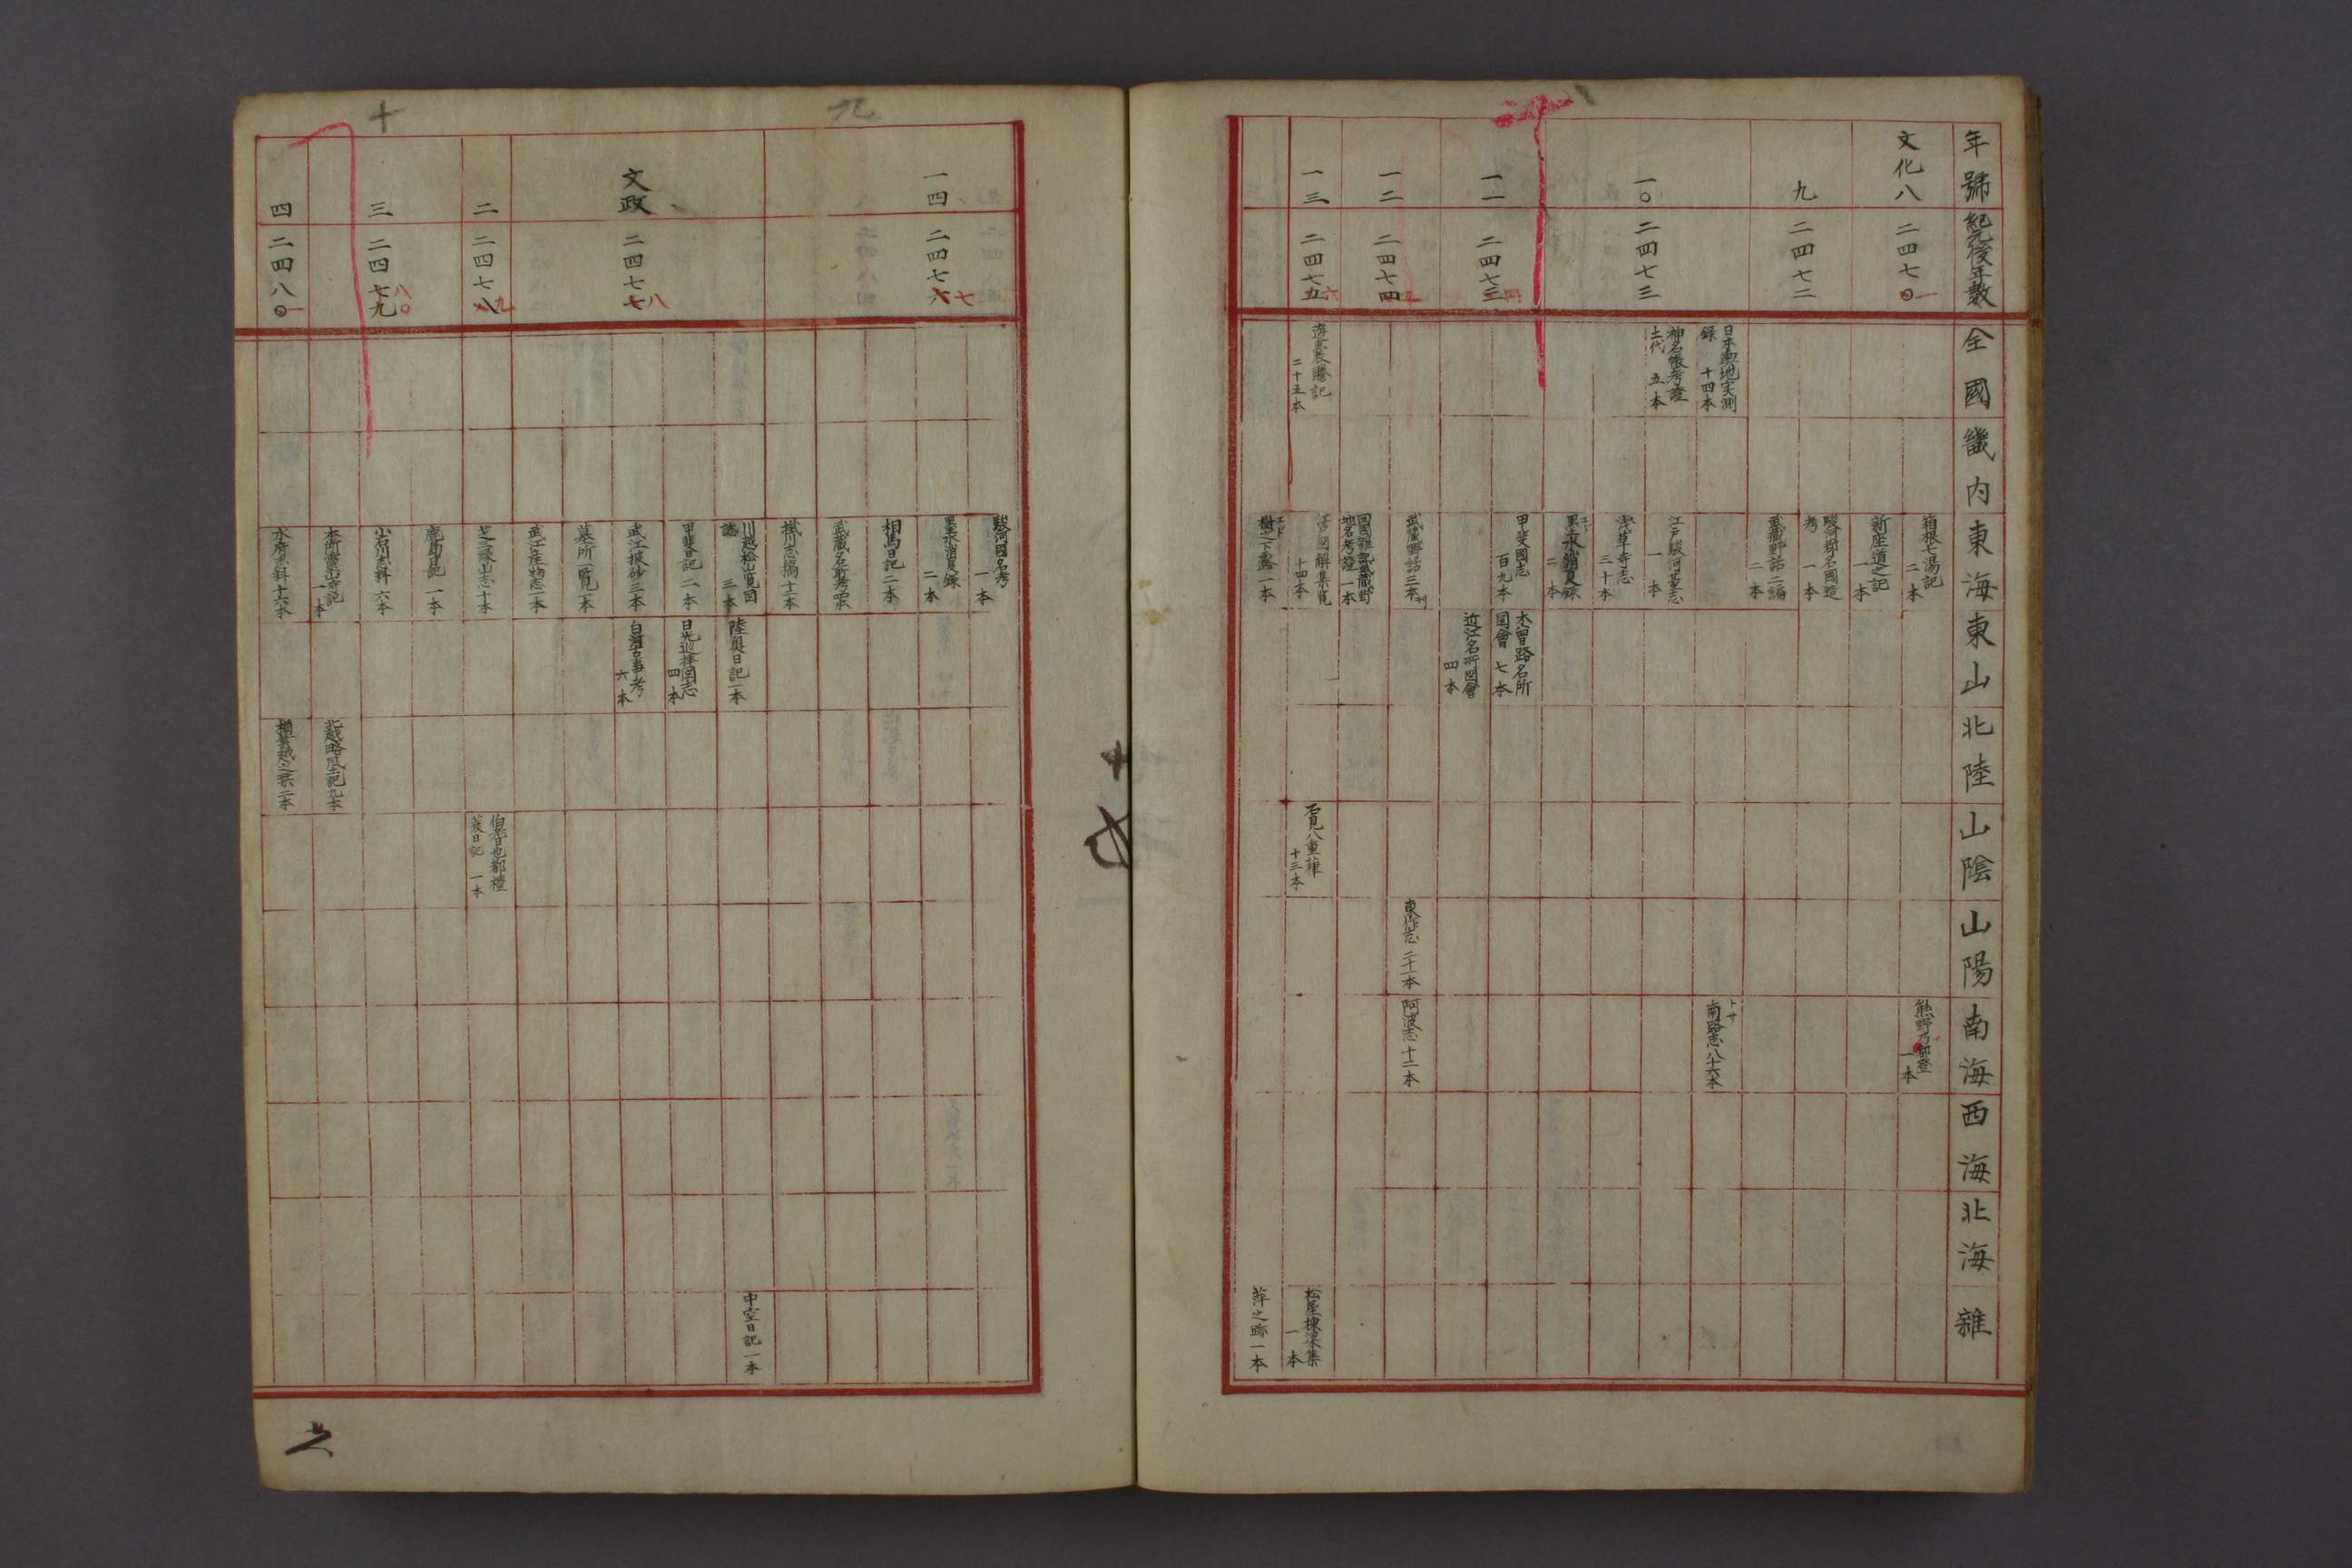 年號
紀元後年數
全國
畿内
東海
東山
北陸
山陰
山陽
南海
西海
北海
雜
文化八
二四七〇
一
箱根七湯記
二本
熊野乃
一本
新座道之記
一本
九
二四七二
駿河郡名國造
考
一本
武藏野話二編
二本
日本輿地実測
録
十四本
トサ
南路志八十六本
一〇
二四七三
神名帳考證
土代
五本
江戸駿河墓志
一本
浅草寺志
三十本
墨水消夏録
二本
一一
二四七三
四
甲斐國志
百九本
木曽路名所
図會
七本
近江名所図會
四本
一二
二四七四
武藏野話三本
東作志
二十一本
阿波志
十二本
回國雑記武藏野
地名考證
一本
一三
二四七五
六
二十五本
江戸図解集覧
十四本
石見八重葎
十三本
松屋棟梁集
一本
樹之下露一本
萍之跡一本
九
駿河國名考
一本
一四
二四七六
七
墨水消夏録
二本
相馬日記二本
武藏名所考
掛川志稿
川越松山覧図
誌
三本
陸奥日記一本
中空日記一本
甲斐日記二本
日光巡拝図志
四本
文政
二四七七
八
武江披砂三本
白河古事考
六本
墓所一覧一本
武江産物志一本
二
二四七八
九
十本
伯耆
日記
一本
鹿島日記
一本
三
二四七九
八〇
小石川志料
六本
十
本所霊山寺記
一本
北越略風土記九本
四
二四八〇
一
水府志料十六本
二本